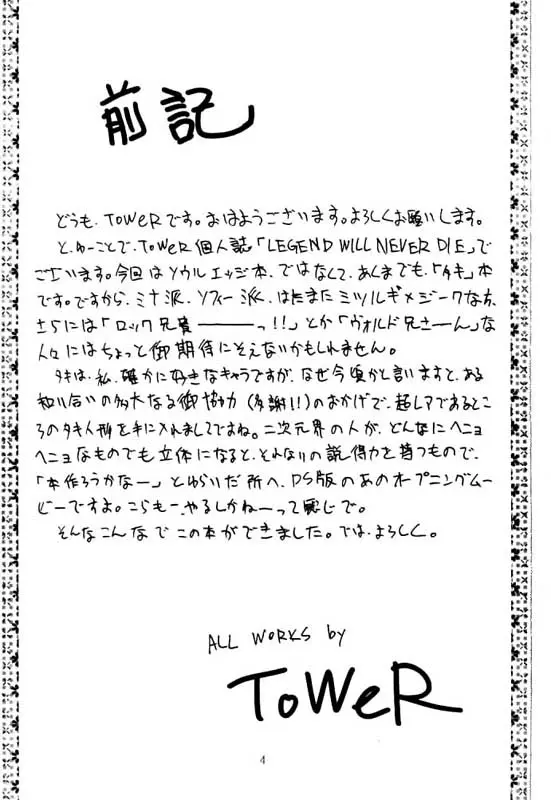 前記
どうも、ToWeRです。おはようございます。よろしくお願いします。
と、ゆーことで、ToWeR個人誌「LEGEND WILL NEVER DIE」で
ございます。今回はソウルエッジ本、ではなくて、あくまでも、「タキ」本
です。ですから、ミナ派、ソフィー派、はたまたミツルギ×ジークなカ、
さらには「ロック兄貴―――っ!!」とか「ヴォルド兄さーん」な
人々にはちょっと御期待にそえないかもしれません。
タキは、私、確かに好きなキャラですが、なぜ今頃かと言いますと、ある
知り合いの多大なる御協力(多謝!!)のおかげで、超レアであるところ
のタキ人形を手に入れましてですね。二次元界の人が、どんなにヘニョ
ヘニョなものでも立体になると、それなりの説得力を持つもので、
「本作ろうかなー」とゆらいだ所へ、PS版のあのオープニングムー
ビーですよ。こらもー、やるしかねーって感じで。
そんなこんなでこの本ができました。では、よろしく。
ALL WORKS by
ToWeR
4